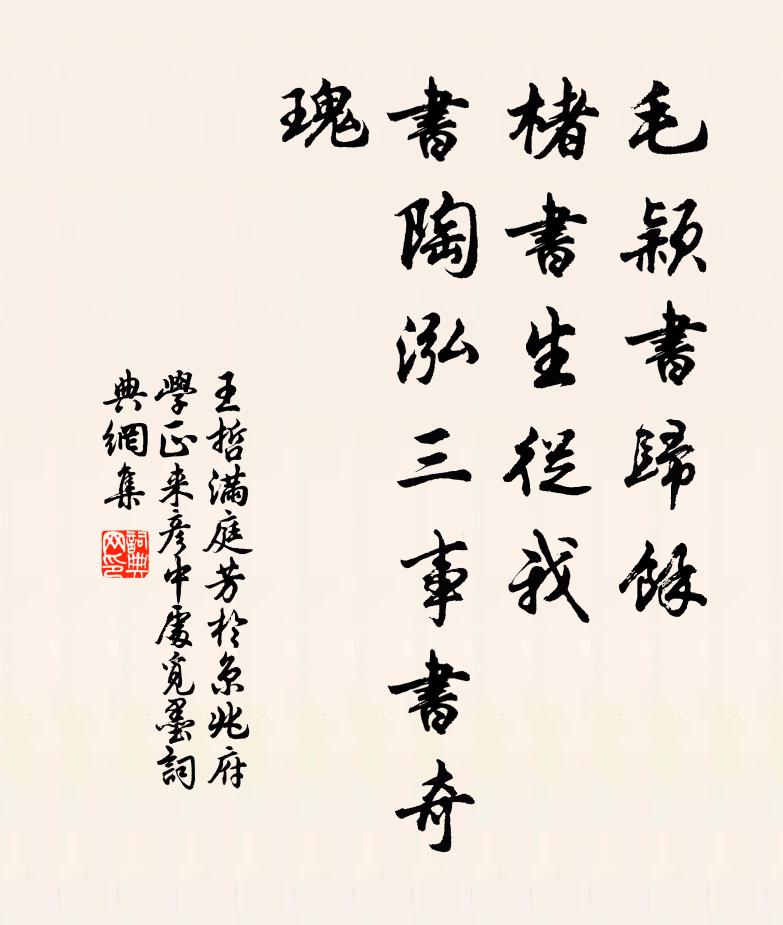 毛颖書歸餘
楮書生從我
書陶泓三事書奇
瑰
王哲滿庭芳於京兆府
學正来彦中處覓墨詞
典網集
詞典网印